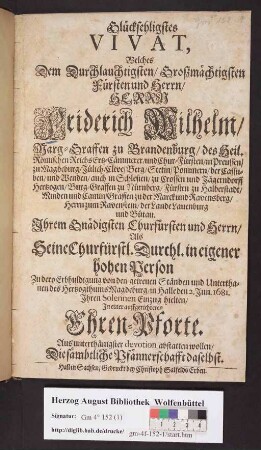 Glückseeligstes
VIVAT,
Welches
Dem Durchlauchtigsten/ Großmächtigsten
Fürsten und Herrn/
HERRN
Friderich Wilhelm/
Marg-Graffen zu Brandenburg/ des Heil.
Römischen Reichs Ertz-Cämmerer und Chur-Fürsten/ in Preussen/
zu Magdeburg/ Jülich/ Cleve/ Berg/ Stettin/ Pommern/ der Cassu-
ben/ und Wenden/ auch in Schlesien/ zu Crossen und Jägerndorff
Hertzogen/ Burg-Graffen zu Nürnberg/ Fürsten zu Halberstadt/
Minden und Camin/ Graffen zu der Marck und Ravensberg/
Herrn zum Ravenstein/ der Lande Lauenburg
und Bütau.
Ihrem Gnädigsten Churfürsten und Herrn/
Als
Seine Churfürstl. Durchl. in eigener
hohen Person
Zu dero Erbhuldigung von den getreuen Ständen und Untertha-
nen des Hertzogthums Magdeburg/ in Halle den 2. Jun. 1681.
Ihren Solennen Einzug hielten/
In einer auffgerichteten
Ehren-Pforte.
Aus unterthänigster devotion abstatten wollen/
Die sämbtliche Pfännerschafft daselbst.
Hall in Sachsen/ Gedruckt bey Christoph Salfelds Erben.
Herzog August Bibliothek Wolfenbüttel
Signatur: Gm 4° 152 (1)
http://diglib.hab.de/drucke/ gm-4f-152-1/start.htm